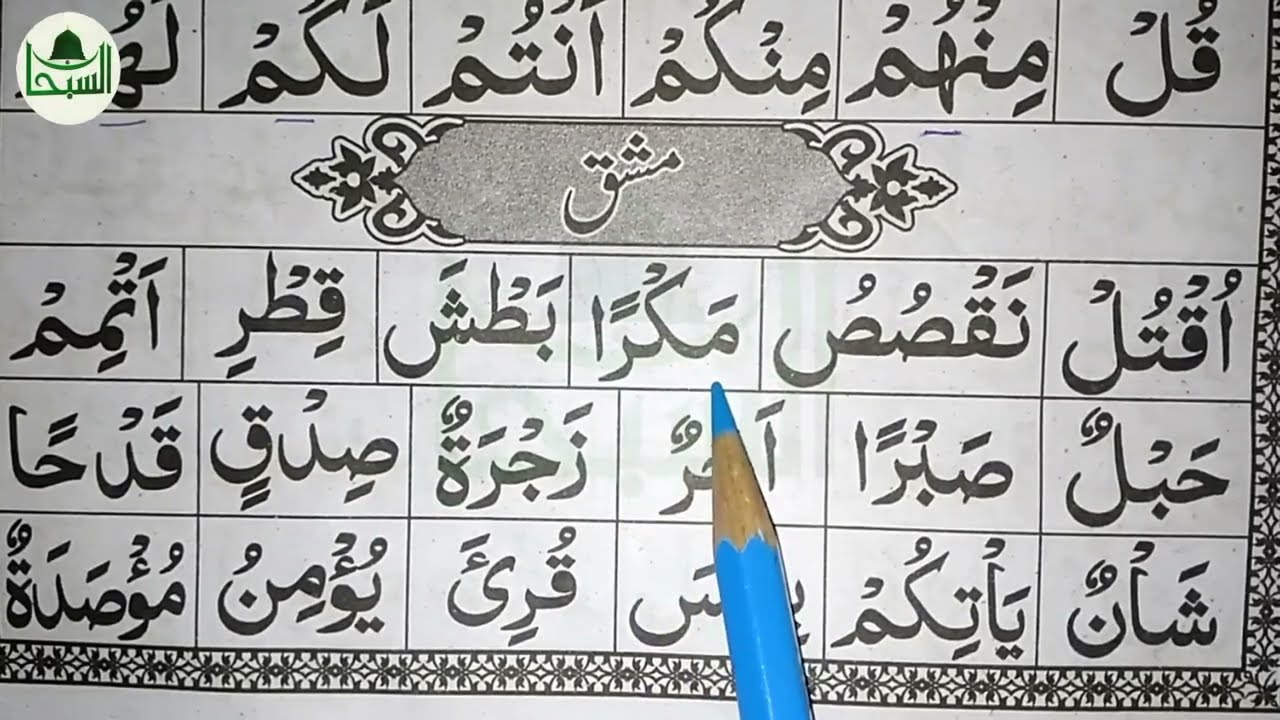 قُلْ مِنْهُمْ مِنْكُمْ اَنْتُمْ لَكُمْ
السبحان
مشق
اُقْتُلْ نَقْصُصُ مَكْرًا بَطْشَ قِطْرِ اَتْمِمْ
حَبْلٌ صَبْرًا زَجْرَةٌ صِدْقٍ قَدْحًا
شَاْنٌ يَاْتِكُمْ قُرِئَ يُؤْمِنُ مُؤْصَدَةٌ